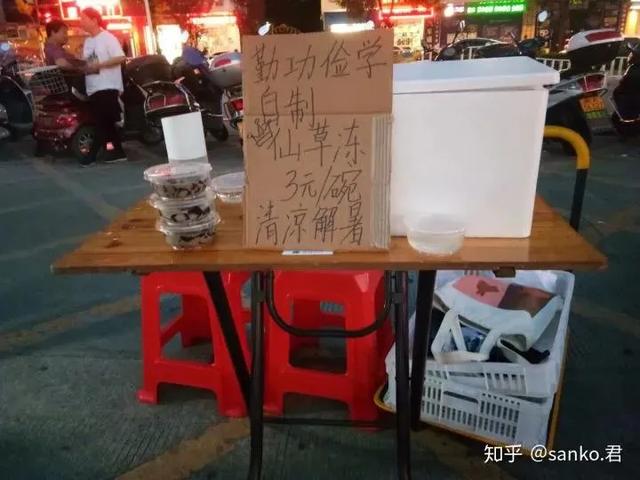 勤功俭学
自制
仙草冻
3元/碗
清凉解暑
知乎 @sanko.君